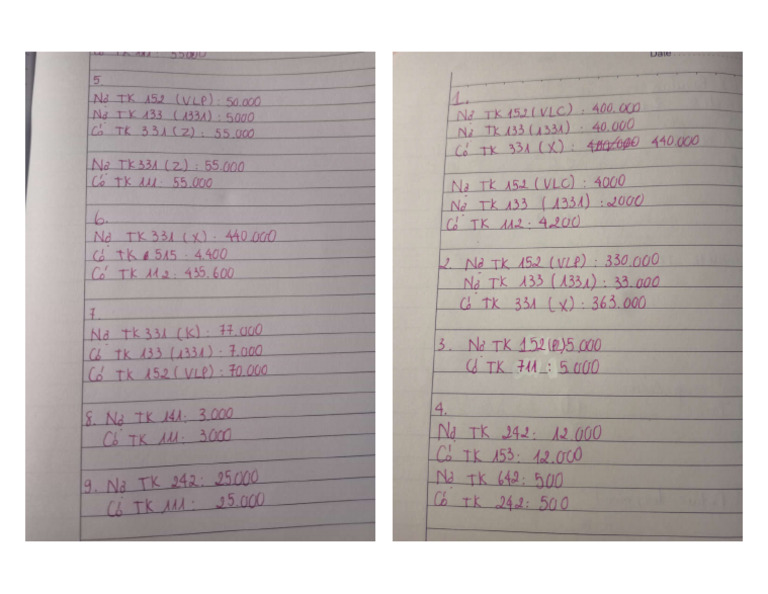 5
Nợ TK 152 (VLP) : 50.000
Nợ TK 133 (1331) : 5000
Có TK 331 (Z) : 55.000
Nợ TK 331 (Z) : 55.000
Có TK 111 : 55.000
6.
Nợ TK 331 (X) . 440.000
Có TK 515 . 4.400
Có TK 112 : 435.600
7.
Nợ TK 331 (K) : 77.000
Có TK 133 (1331) . 7.000
Có TK 152 (VLP) : 70.000
8. Nợ TK 141 : 3.000
Có TK 111 : 3000
9. Nợ TK 242 : 25.000
Có TK 111 : 25.000
Date
1.
Nợ TK 152 (VLC) : 400.000
Nợ TK 133 (1331) : 40.000
Có TK 331 (X) : 440.000
Nợ TK 152 (VLC) : 4000
Nợ TK 133 (1331) : 2000
Có TK 112 : 4200
2. Nợ TK 152 (VLP) : 330.000
Nợ TK 133 (1331) : 33.000
Có TK 331 (X) : 363.000
3. Nợ TK 152 5.000
Có TK 711 : 5.000
4.
Nợ TK 242 : 12.000
Có TK 153 : 12.000
Nợ TK 642 : 500
Có TK 242 : 500